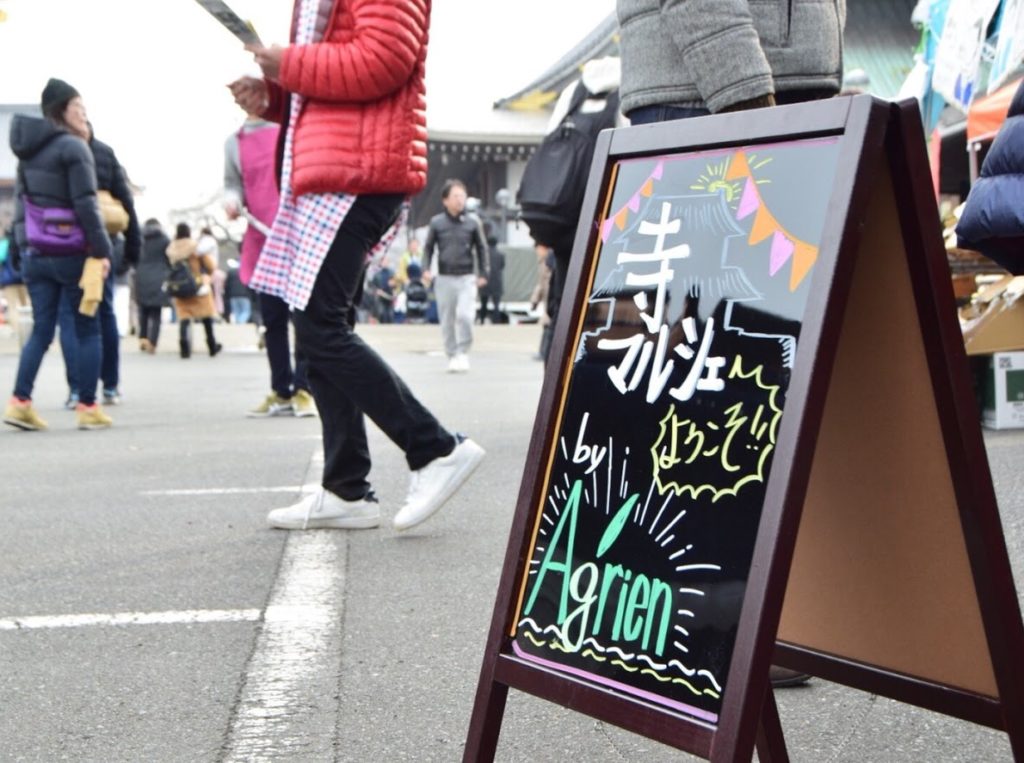 寺
マルシェ
ようこそ!!
by
Agrien